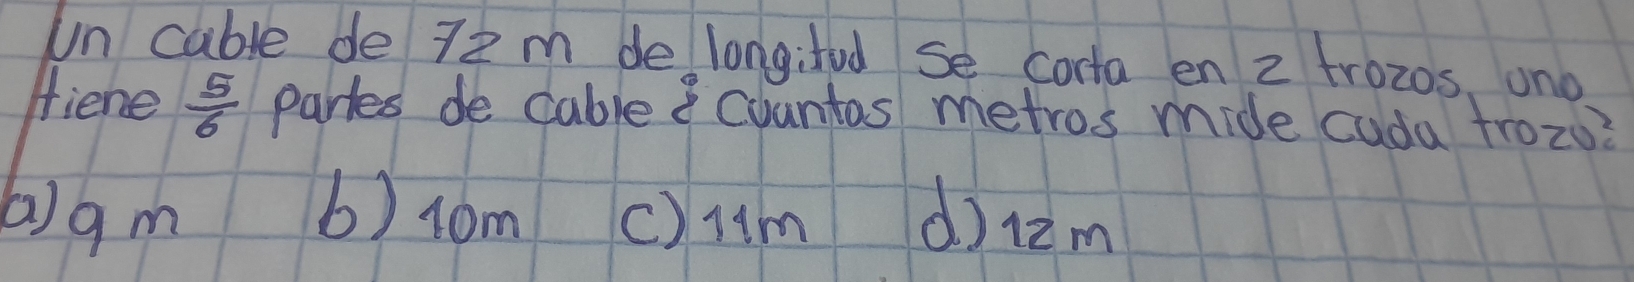 Un cable de 72 m de longitud se corta en 2 trozos, uno
tiene 5/6 partes de cable ¿Cuantos metros mide cada trozo?
a) 9 m b) 10m c) 11m d) 12 m